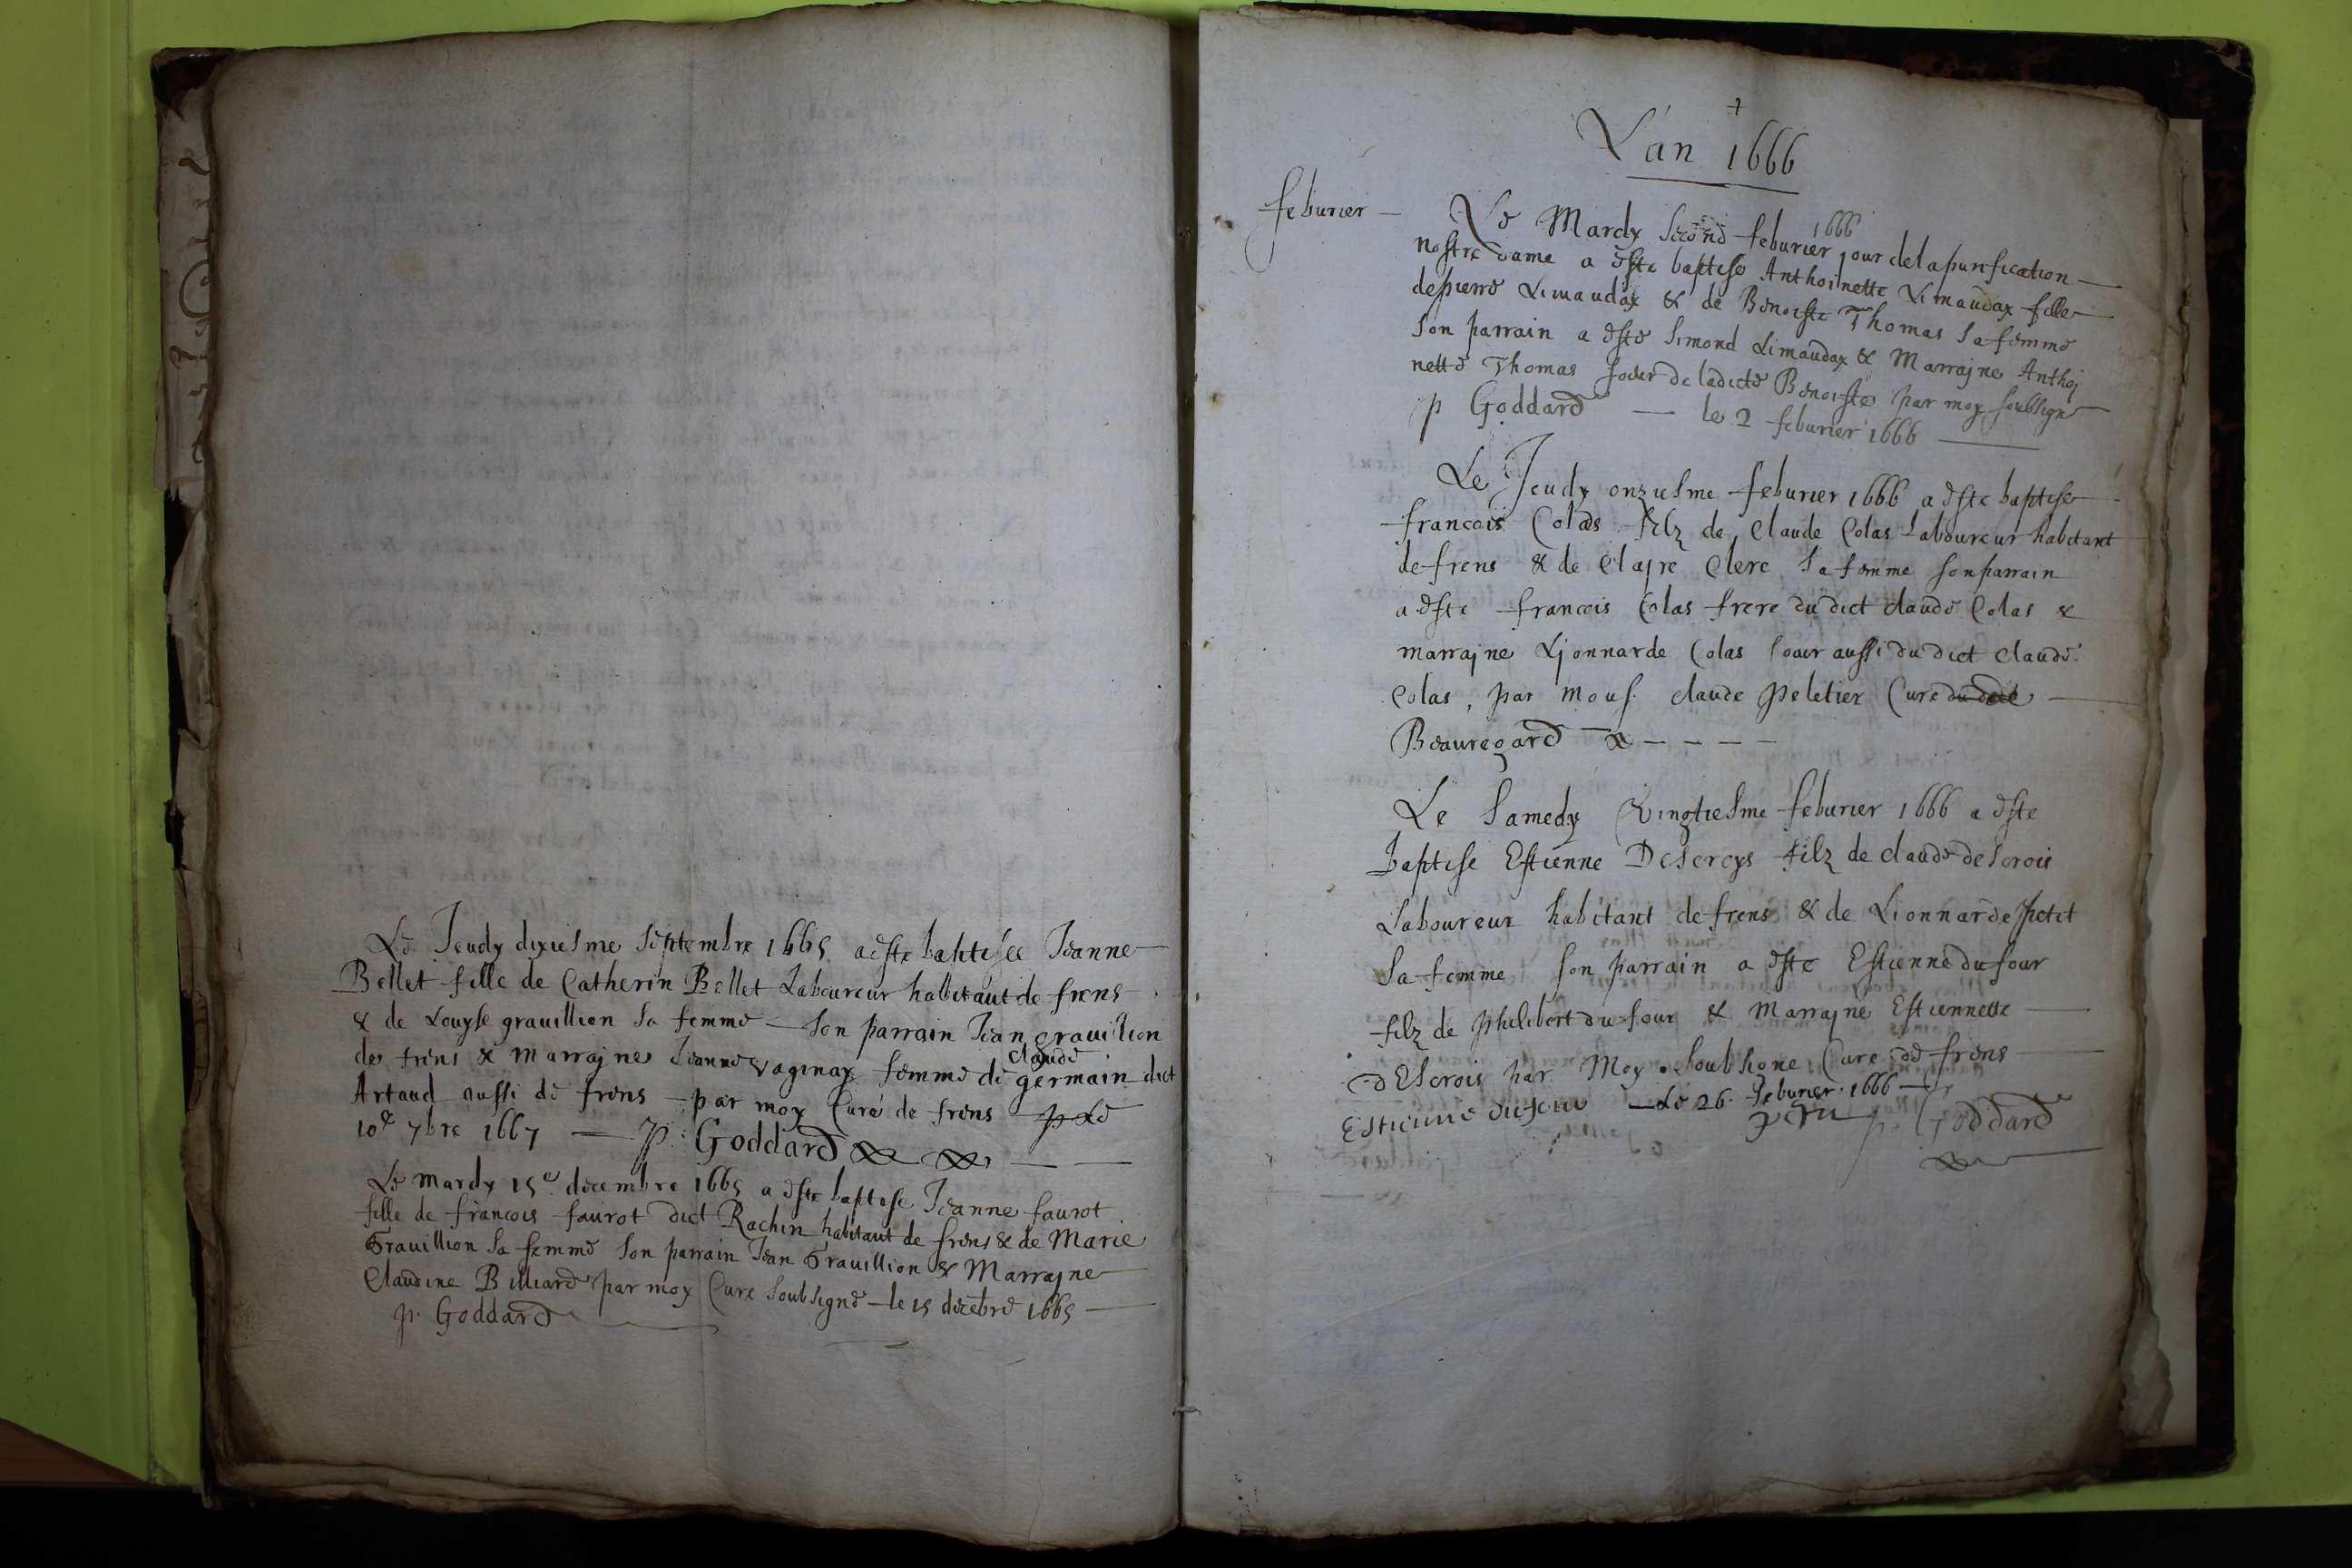 Le Jeudy dixiesme Septembre 1665 a este baptisee Jeanne
Bellet fille de Catherin Bellet Laboureur habitant de frens
& de Louyse grauillion sa femme son parrain Jean grauillion
de frens & marrajne Jeanne vaginay femme de claude germain dict
Artaud aussi de frens par moy Curé de frens Le
10e 7bre 1667 p. Goddard
Le mardy 15e decembre 1665 a este baptise Jeanne faurot
fille de francois faurot dict Rachin habitant de frens & de Marie
Grauillion sa femme son parrain Jean Grauillion & Marrajne
Claudine Billiard par moy Cure soubsigne le 15 decebre 1665
p. Goddard
L'an 1666
feburier
Le Mardy second feburier 1666 jour de la purification
nostre dame a este baptise Anthoinette Limauday fille
de pierre Limauday & de Benoiste Thomas sa femme
son parrain a este Simond Limauday & Marrajne Anthoj
nette Thomas soeur de ladicte Benoiste par moy soubsigne
p Goddard le 2 feburier 1666
Le Jeudy onziesme feburier 1666 a este baptise
francois Colas filz de Claude Colas Laboureur habitant
de frens & de Clajre Clerc sa femme son parrain
a este francois Colas frere du dict claude Colas &
marrajne Ljonnarde Colas soeur aussi du dict claude
Colas, par mons. claude peletier Cure du dict
Beauregard
Le Samedy vingtiesme feburier 1666 a este
baptise Estienne Desereys filz de claude deserois
Laboureur habitant de frens & de Lionnarde petit
sa femme son parrain a este Estienne dufour
filz de philibert du four & Marrajne Estiennette
dEserois par Moy soubsigne Cure de frens
Estienne dufour Le 26 feburier 1666
p. Goddard